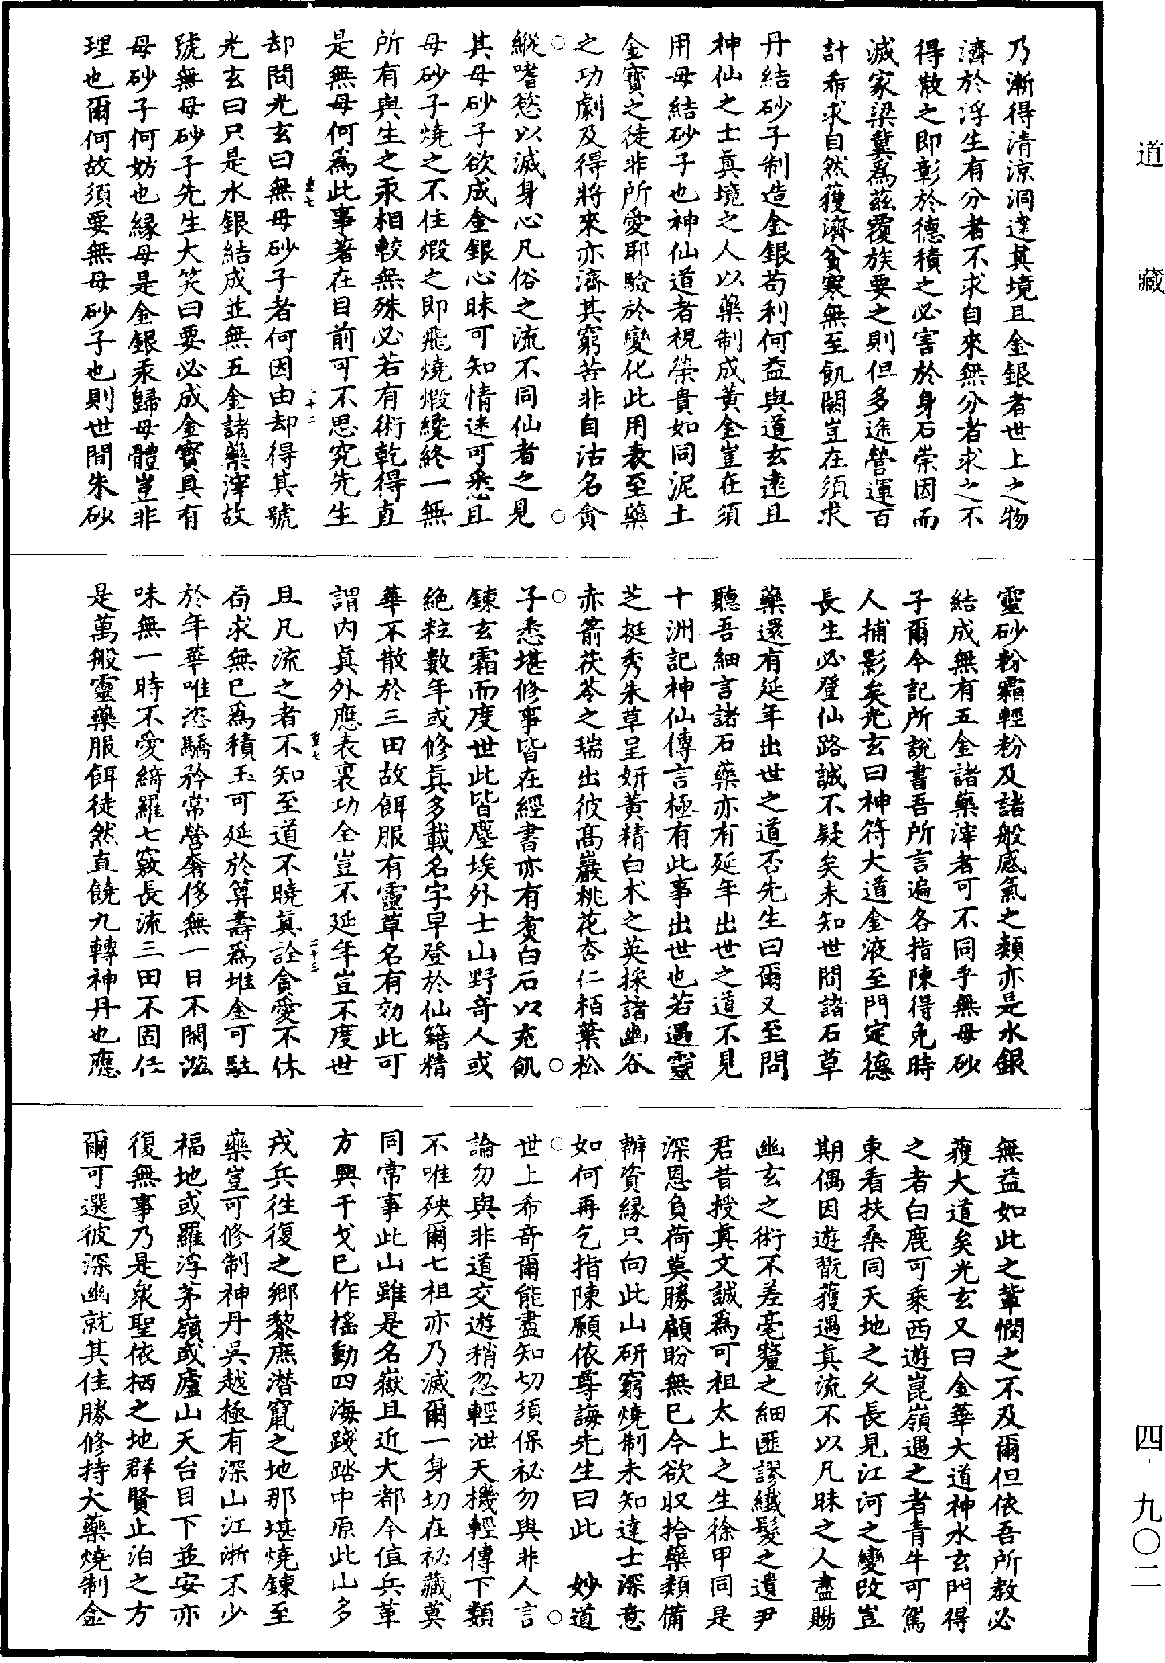 道藏
四·九〇二
乃漸得清涼洞達其境且金銀者世上之物
濟於浮生有分者不求自來無分者求之不
得散之即彰於德積之必害於身石崇因而
滅家梁冀為茲覆族要之則但多逸營運百
計希求自然獲濟貧寒無至飢闕豈在須求
丹結砂子制造金銀苟利何益與道玄遠且
神仙之士真境之人以藥制成黃金豈在須
用母結砂子也神仙道者視榮貴如同泥土
金寶之徒非所愛耶驗於變化此用表至藥
之功劇及得將來亦濟其窮苦非自沽名貪
縱嗜慾以滅身心凡俗之流不同仙者之見
其母砂子欲成金銀心昧可知情迷可悉且
母砂子燒之不住煅之即飛燒煅纔終一無
所有與生之汞相較無殊必若有術乾得直
是無母何為此事著在目前可不思究先生
却問光玄曰無母砂子者何因由却得其號
光玄曰只是水銀結成並無五金諸藥滓故
號無母砂子先生大笑曰要必成金寶具有
母砂子何妨也緣母是金銀汞歸母體豈非
理也爾何故須要無母砂子也則世間朱砂
靈砂粉霜輕粉及諸般感氣之類亦是水銀
結成無有五金諸藥滓者可不同乎無母砂
子爾今記所說書吾所言遍各指陳得免時
人捕影矣光玄曰神符大道金液至門定德
長生必登仙路誠不疑矣未知世間諸石草
藥還有延年出世之道否先生曰爾又至問
聽吾細言諸石藥亦有延年出世之道不見
十洲記神仙傳言極有此事出世也若遇靈
芝挺秀朱草呈妍黃精白术之英採諸幽谷
赤箭茯苓之瑞出彼高巖桃花杏仁栢葉松
子悉堪修事皆在經書亦有煮白石以充飢
鍊玄霜而度世此皆塵埃外士山野奇人或
絕粒數年或修真多載名字早登於仙籍精
華不散於三田故餌服有靈草名有効此可
謂內真外應表裏功全豈不延年豈不度世
且凡流之者不知至道不曉真詮貪愛不休
苟求無已為積玉可延於筭壽為堆金可駐
於年華唯恣驕矜常營奢侈無一日不閑滋
味無一時不愛綺羅七竅長流三田不固任
是萬般靈藥服餌徒然直饒九轉神丹也應
無益如此之輩憫之不及爾但依吾所教必
獲大道矣光玄又曰金華大道神水玄門得
之者白鹿可乘西遊崑嶺遇之者青牛可駕
東看扶桑同天地之久長見江河之變改豈
期偶因遊翫獲遇真流不以凡昧之人盡賜
幽玄之術不差毫釐之細匪謬纖髮之遺尹
君昔授真文誠為可祖太上之生徐甲同是
深恩負荷莫勝顧盼無已今欲収拾藥類備
辦資緣只向此山研窮燒制未知達士深意
如何再乞指陳願依尊誨先生曰此　妙道
世上希奇爾能盡知切須保祕勿與非人言
論勿與非道交遊稍忽輕泄天機輕傳下類
不唯殃爾七祖亦乃滅爾一身切在祕藏莫
同常事此山雖是名嶽且近大都今值兵革
方興干戈已作搖動四海踐踏中原此山多
戎兵往復之鄉黎庶潛竄之地那堪燒鍊至
藥豈可修制神丹吳越極有深山江浙不少
福地或羅浮茅嶺或廬山天台目下並安亦
復無事乃是衆聖依栖之地群賢止泊之方
爾可選彼深幽就其佳勝修持大藥燒制金